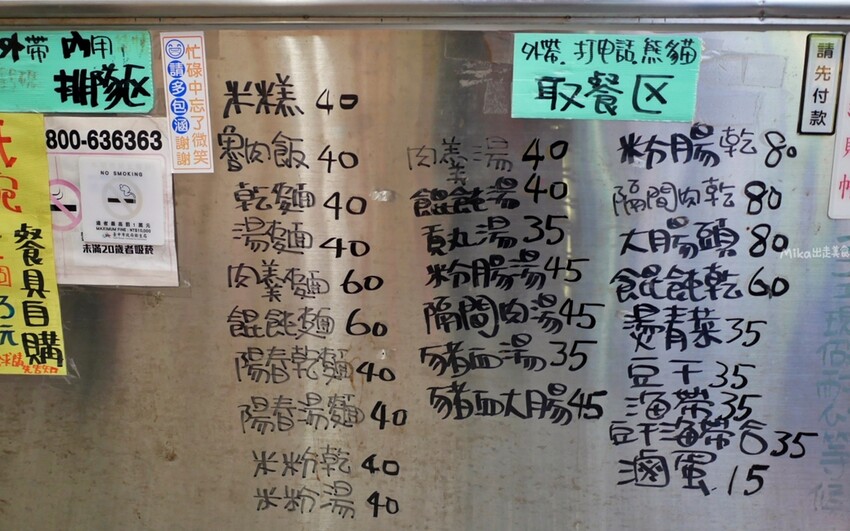 外帶 內用
排隊区
忙碌中忘了微笑
請多包涵 謝謝
外帶.打电話.熊貓
取餐区
請先付款
800-636363
NO SMOKING
未滿20歲者吸菸
餐具自購
米糕 40
魯肉飯 40
乾麵 40
湯麵 40
肉羹麵 60
餛飩麵 60
陽春乾麵 40
陽春湯麵 40
米粉乾 40
米粉湯 40
肉羹湯 40
餛飩湯 40
貢丸湯 35
粉腸湯 45
隔間肉湯 45
豬血湯 35
豬血大腸 45
粉腸乾 80
隔間肉乾 80
大腸頭 80
餛飩乾 60
燙青菜 35
豆干 35
海帶 35
豆干海帶合 35
滷蛋 15
Mika出走美食